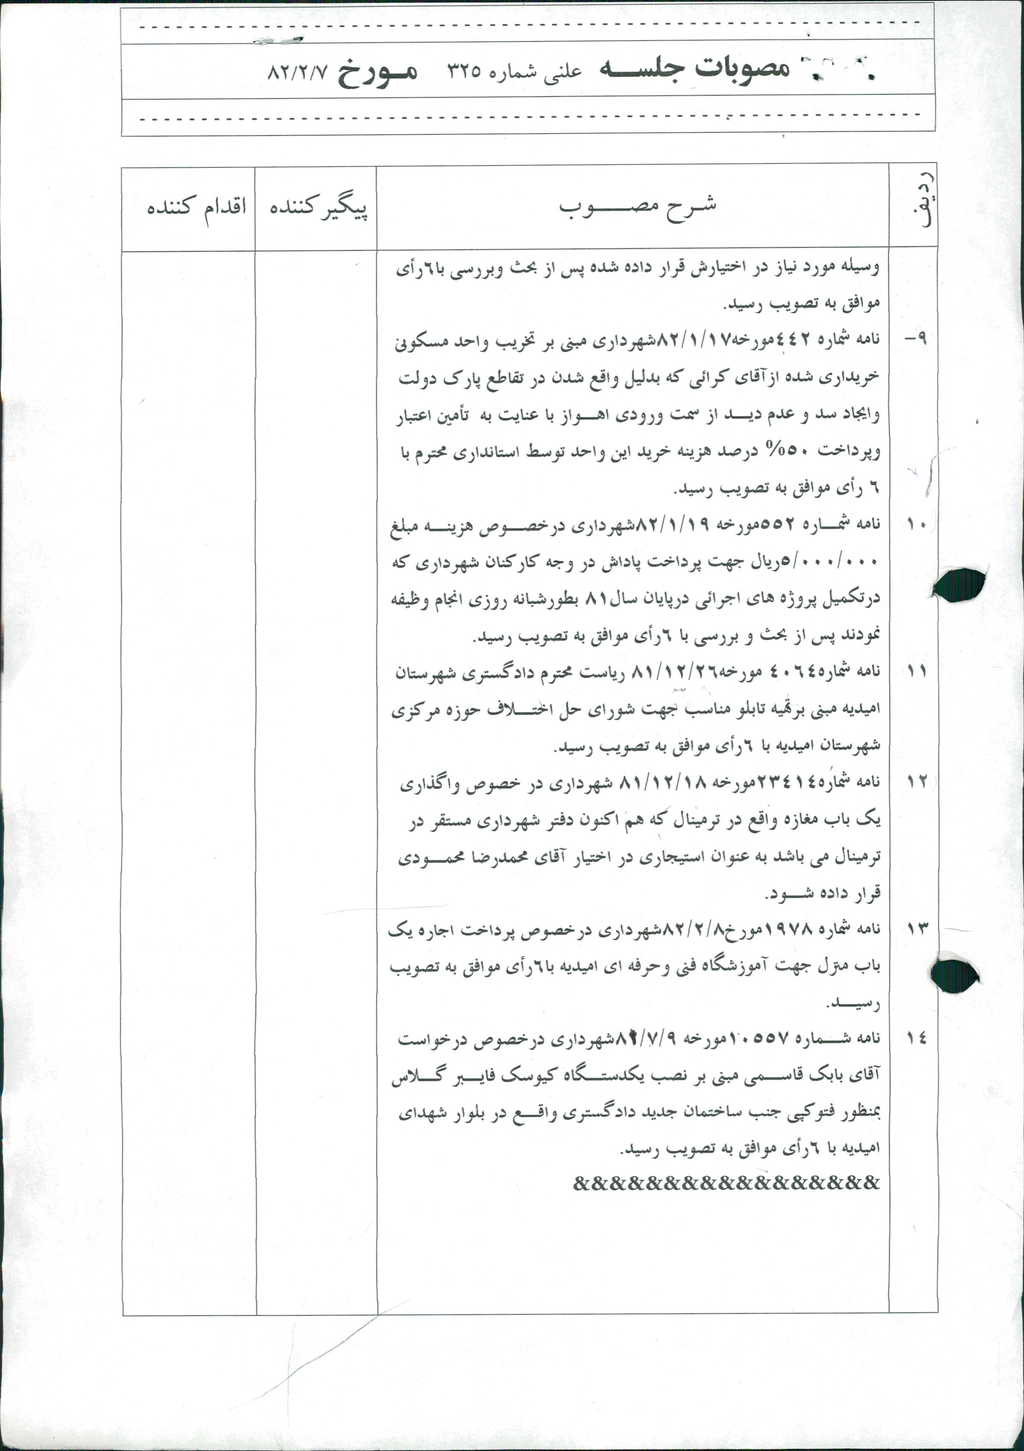 مصوبات جلسـه علنی شماره ۳۲۵ مـورخ ۸۲/۲/۷
ردیف
شـرح مصـــوب
پیگیر کننده
اقدام کننده
وسیله مورد نیاز در اختیارش قرار داده شده پس از بحث وبررسی با۶رأی
موافق به تصویب رسید.
۹- نامه شماره ۴۴۲مورخه۸۲/۱/۱۷شهرداری مبنی بر تخریب واحد مسکونی
خریداری شده ازآقای کرائی که بدلیل واقع شدن در تقاطع پارک دولت
وایجاد سد و عدم دیـد از سمت ورودی اهـواز با عنایت به تأمین اعتبار
وپرداخت ۵۰% درصد هزینه خرید این واحد توسط استانداری محترم با
۶ رأی موافق به تصویب رسید.
۱۰ نامه شـماره ۵۵۲مورخه ۸۲/۱/۱۹شهرداری درخصـوص هزینـه مبلغ
۵/۰۰۰/۰۰۰ریال جهت پرداخت پاداش در وجه کارکنان شهرداری که
درتکمیل پروژه های اجرائی درپایان سال۸۱ بطورشبانه روزی انجام وظیفه
نمودند پس از بحث و بررسی با ۶رأی موافق به تصویب رسید.
۱۱ نامه شماره۴۰۶۴ مورخه۸۱/۱۲/۲۶ ریاست محترم دادگستری شهرستان
امیدیه مبنی برتهیه تابلو مناسب جهت شورای حل اختـلاف حوزه مرکزی
شهرستان امیدیه با ۶رأی موافق به تصویب رسید.
۱۲ نامه شماره۲۳۴۱۴مورخه ۸۱/۱۲/۱۸ شهرداری در خصوص واگذاری
یک باب مغازه واقع در ترمینال که هم اکنون دفتر شهرداری مستقر در
ترمینال می باشد به عنوان استیجاری در اختیار آقای محمدرضا محمـودی
قرار داده شـود.
۱۳ نامه شماره ۱۹۷۸مورخ۸۲/۲/۸شهرداری درخصوص پرداخت اجاره یک
باب منزل جهت آموزشگاه فنی وحرفه ای امیدیه با۶رأی موافق به تصویب
رسیـد.
۱۴ نامه شـماره ۱۰۵۵۷مورخه ۸۱/۷/۹شهرداری درخصوص درخواست
آقای بابک قاسـمی مبنی بر نصب یکدستـگاه کیوسک فایـبر گـلاس
بمنظور فتوکپی جنب ساختمان جدید دادگستری واقـع در بلوار شهدای
امیدیه با ۶رأی موافق به تصویب رسید.
&&&&&&&&&&&&&&&&&